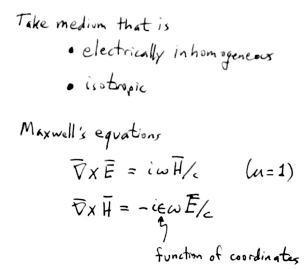 Take medium that is
• electrically inhomogeneous
• isotropic
Maxwell's equations
∇̄ x Ē = iωH̄/c (μ=1)
∇̄ x H̄ = -iϵωĒ/c
function of coordinates